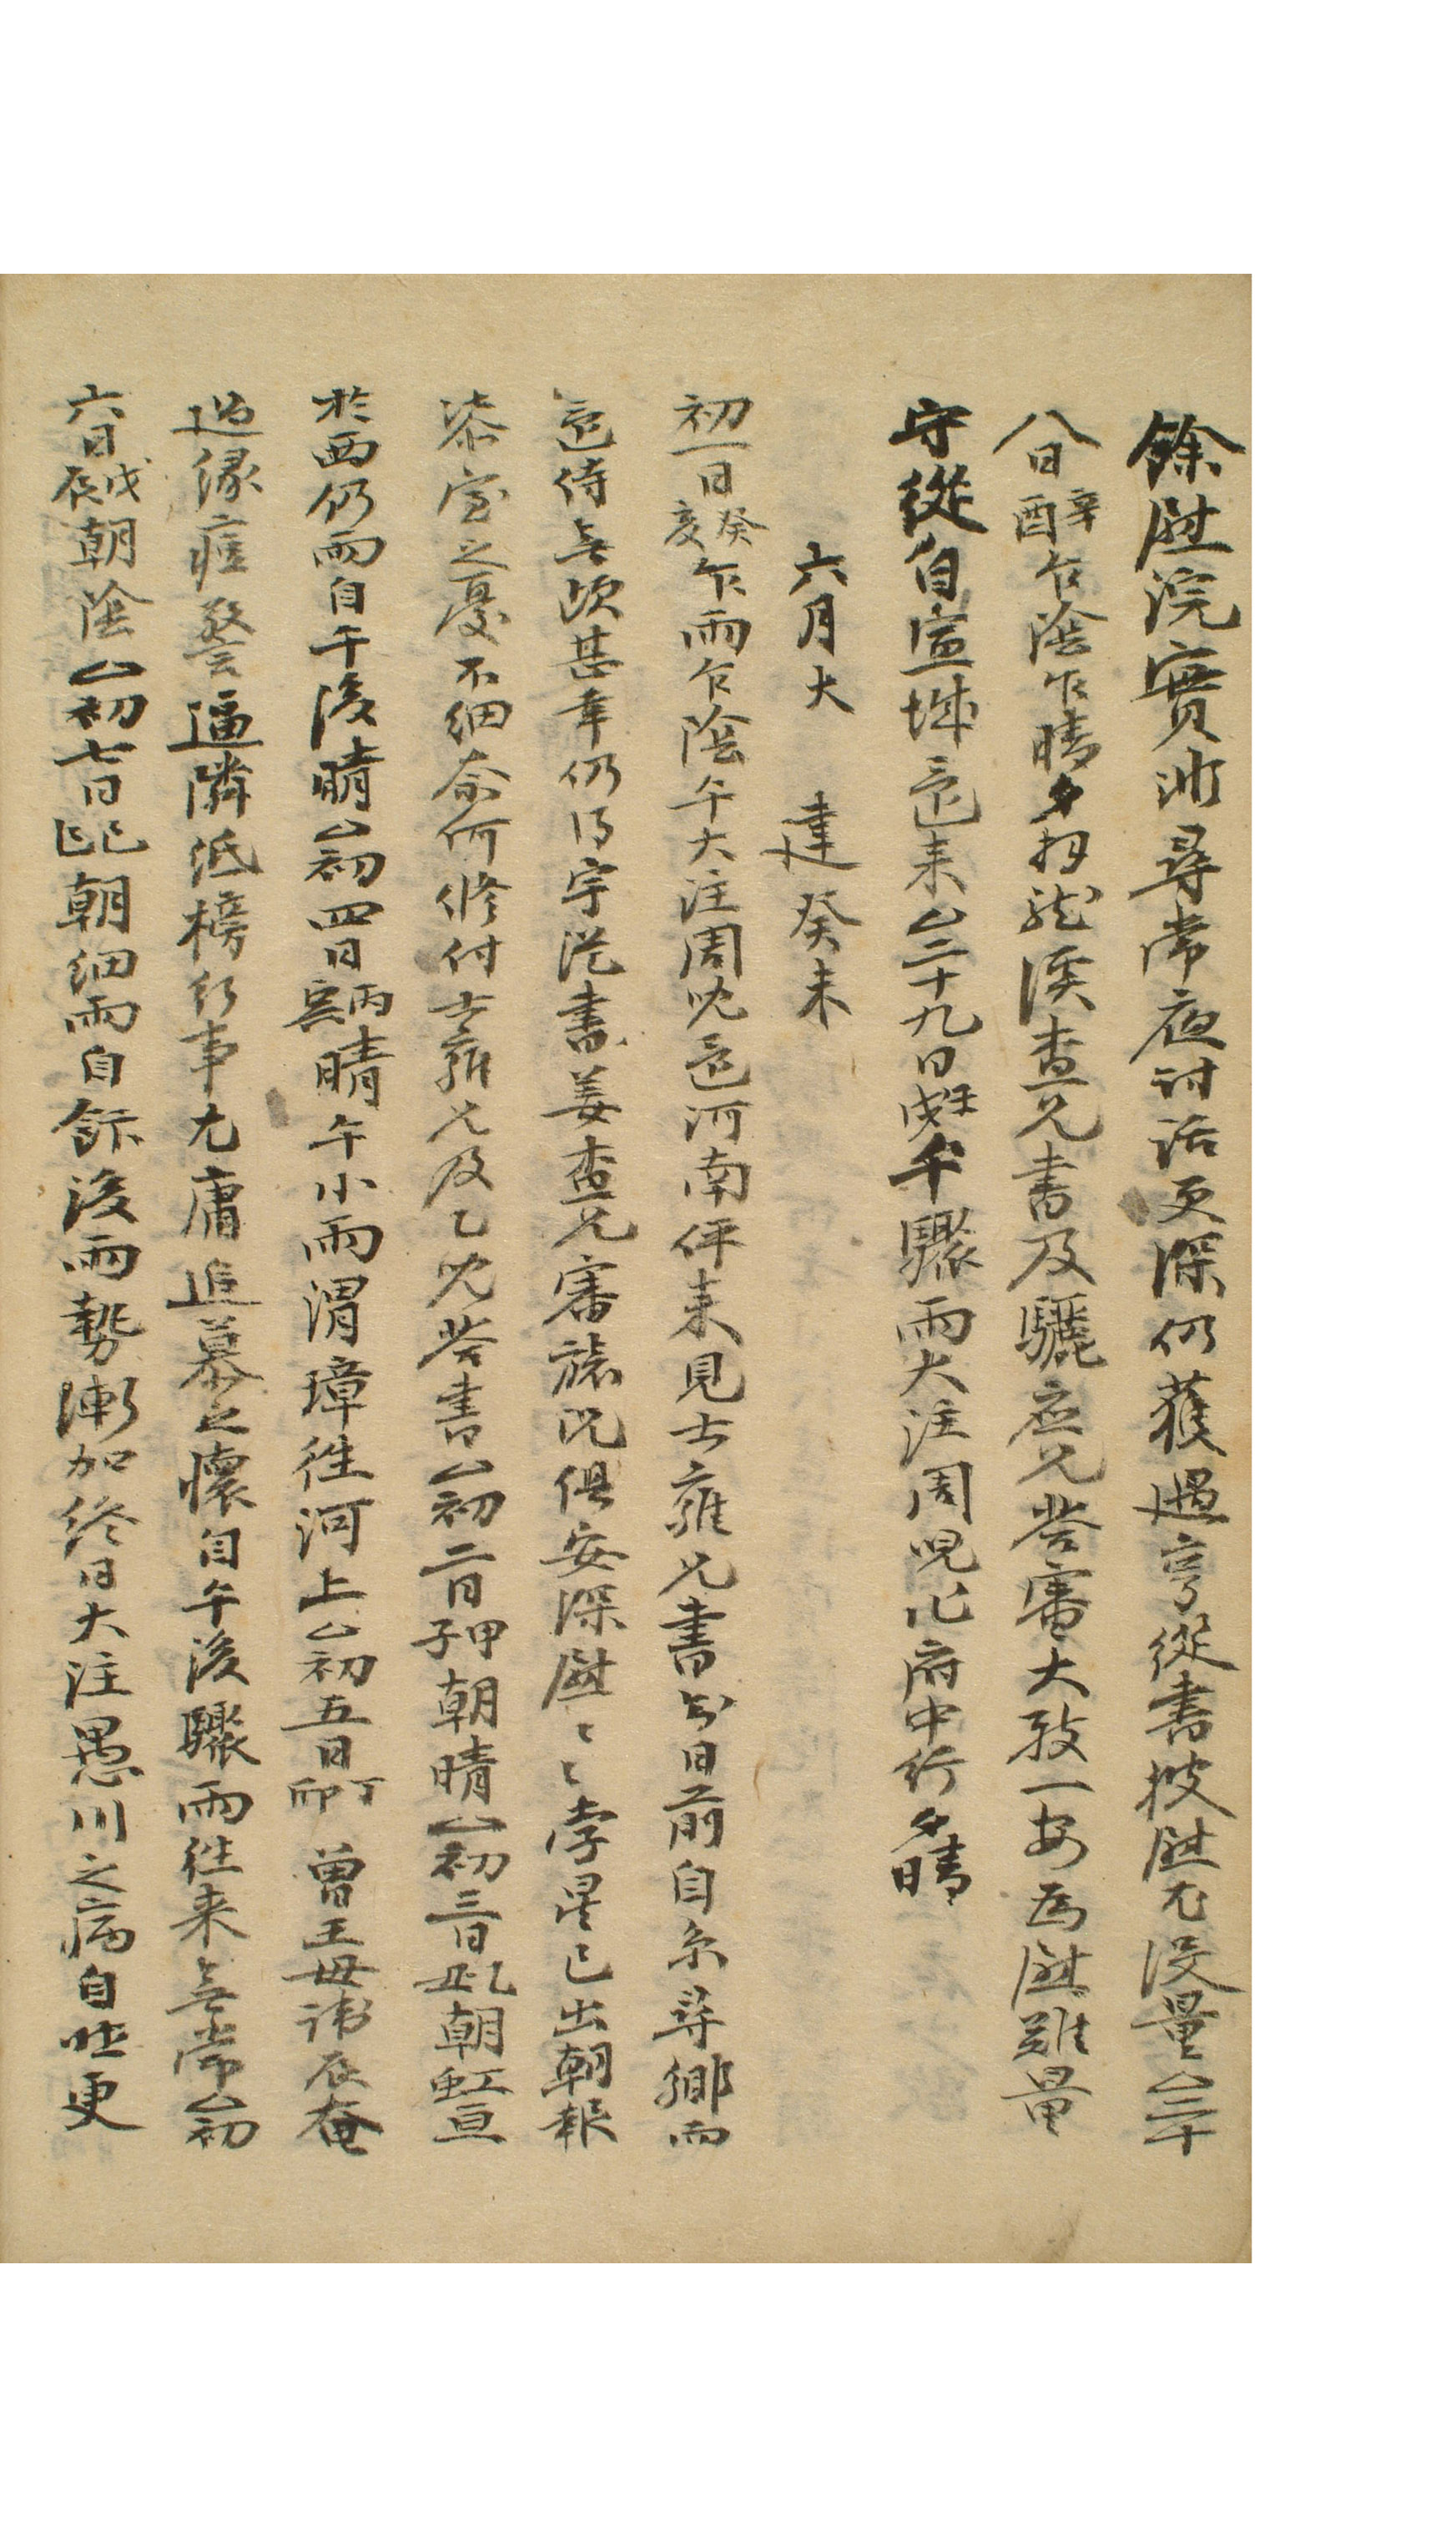 餘慰浣實非尋常夜討話更深仍獲過亨從書披慰尤沒量△二十
八日辛酉乍陰乍晴夕拜龍溪査兄書及驪庄兄答審大致一安爲慰難量
守從自宣城還來△二十九日壬戌午驟雨大注周児作府中行夕晴
六月大 建癸未
初一日癸亥乍雨乍陰午大注周児還河南伻來見士雍兄書

日前自京尋鄕而
還侍無頉甚幸仍得宇從書姜査兄審旅況俱安深慰〻〻孛星已出朝報
漆室之憂不細奈何修付士雍兄及乙児答書△初二日甲子朝晴△初三日乙丑朝虹亘
於西仍雨自午後晴△初四日丙寅晴午小雨渭璋往河上△初五日丁卯曾王母諱辰奄
過緣痘警逼隣紙榜行事尤庸追慕之懷自午後驟雨往來無常△初
六日戊辰朝陰△初七日己巳朝細雨自飯後雨勢漸加終日大注愚川之病自昨更